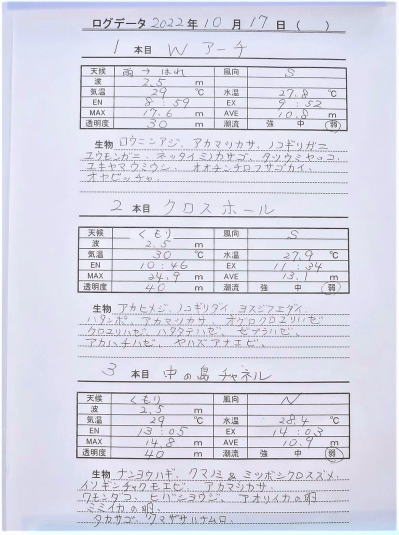 ログデータ 2022年 10 月 17 日 ( )
1 本目 W アーチ
天候 雨→はれ 風向 S
波 2.5 m
気温 29 ℃ 水温 27.8 ℃
EN 8:59 EX 9:52
MAX 17.6 m AVE 10.8 m
透明度 30 m 潮流 強 中 弱
生物 ロウニンアジ、アカマツカサ、ノコギリガニ
ユウモンガニ、ネッタイミノカサゴ、タツウミヤッコ、
ユキヤマウミウシ、オオナンヨウフサゴカイ、
オヤビッチャ
2 本目 クロスホール
天候 くもり 風向 S
波 2.5 m
気温 30 ℃ 水温 27.9 ℃
EN 10:46 EX 11:34
MAX 24.9 m AVE 13.1 m
透明度 40 m 潮流 強 中 弱
生物 アカヒメジ、ノコギリダイ、ヨスジフエダイ、
ハタンポ、アカマツカサ、オグロクロユリハゼ
クロユリハゼ、ハタタテハゼ、ゼブラハゼ、
アカハチハゼ、ヤハズアナエビ、
3 本目 中の島チャネル
天候 くもり 風向 N
波 2.5 m
気温 29 ℃ 水温 28.4 ℃
EN 13:05 EX 14:03
MAX 14.8 m AVE 10.9 m
透明度 40 m 潮流 強 中 弱
生物 ナンヨウハギ、クマノミ&ミツボシクロスズメ、
イソギンチャクモエビ、アカマツカサ
ワモンダコ、ヒバシヨウジ、アオリイカの卵
ミミイカの卵、
タカサゴ、クマザサハナムロ、